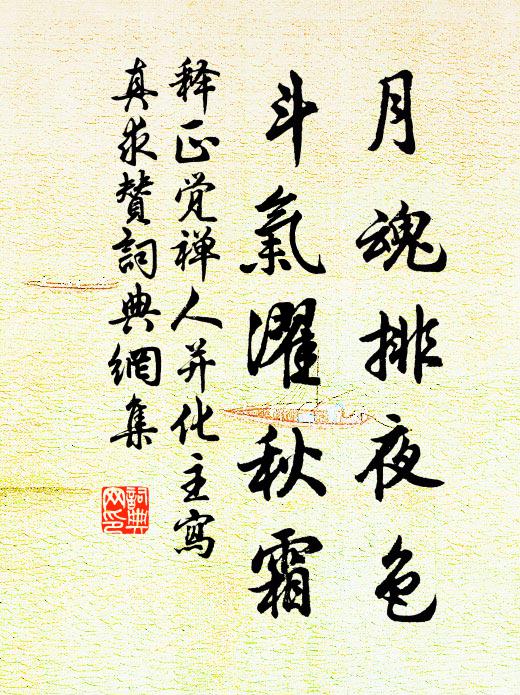 月魂排夜色
斗氣濯秋霜
释正觉禅人并化主寫
真求贊詞典網集
詞典
网印